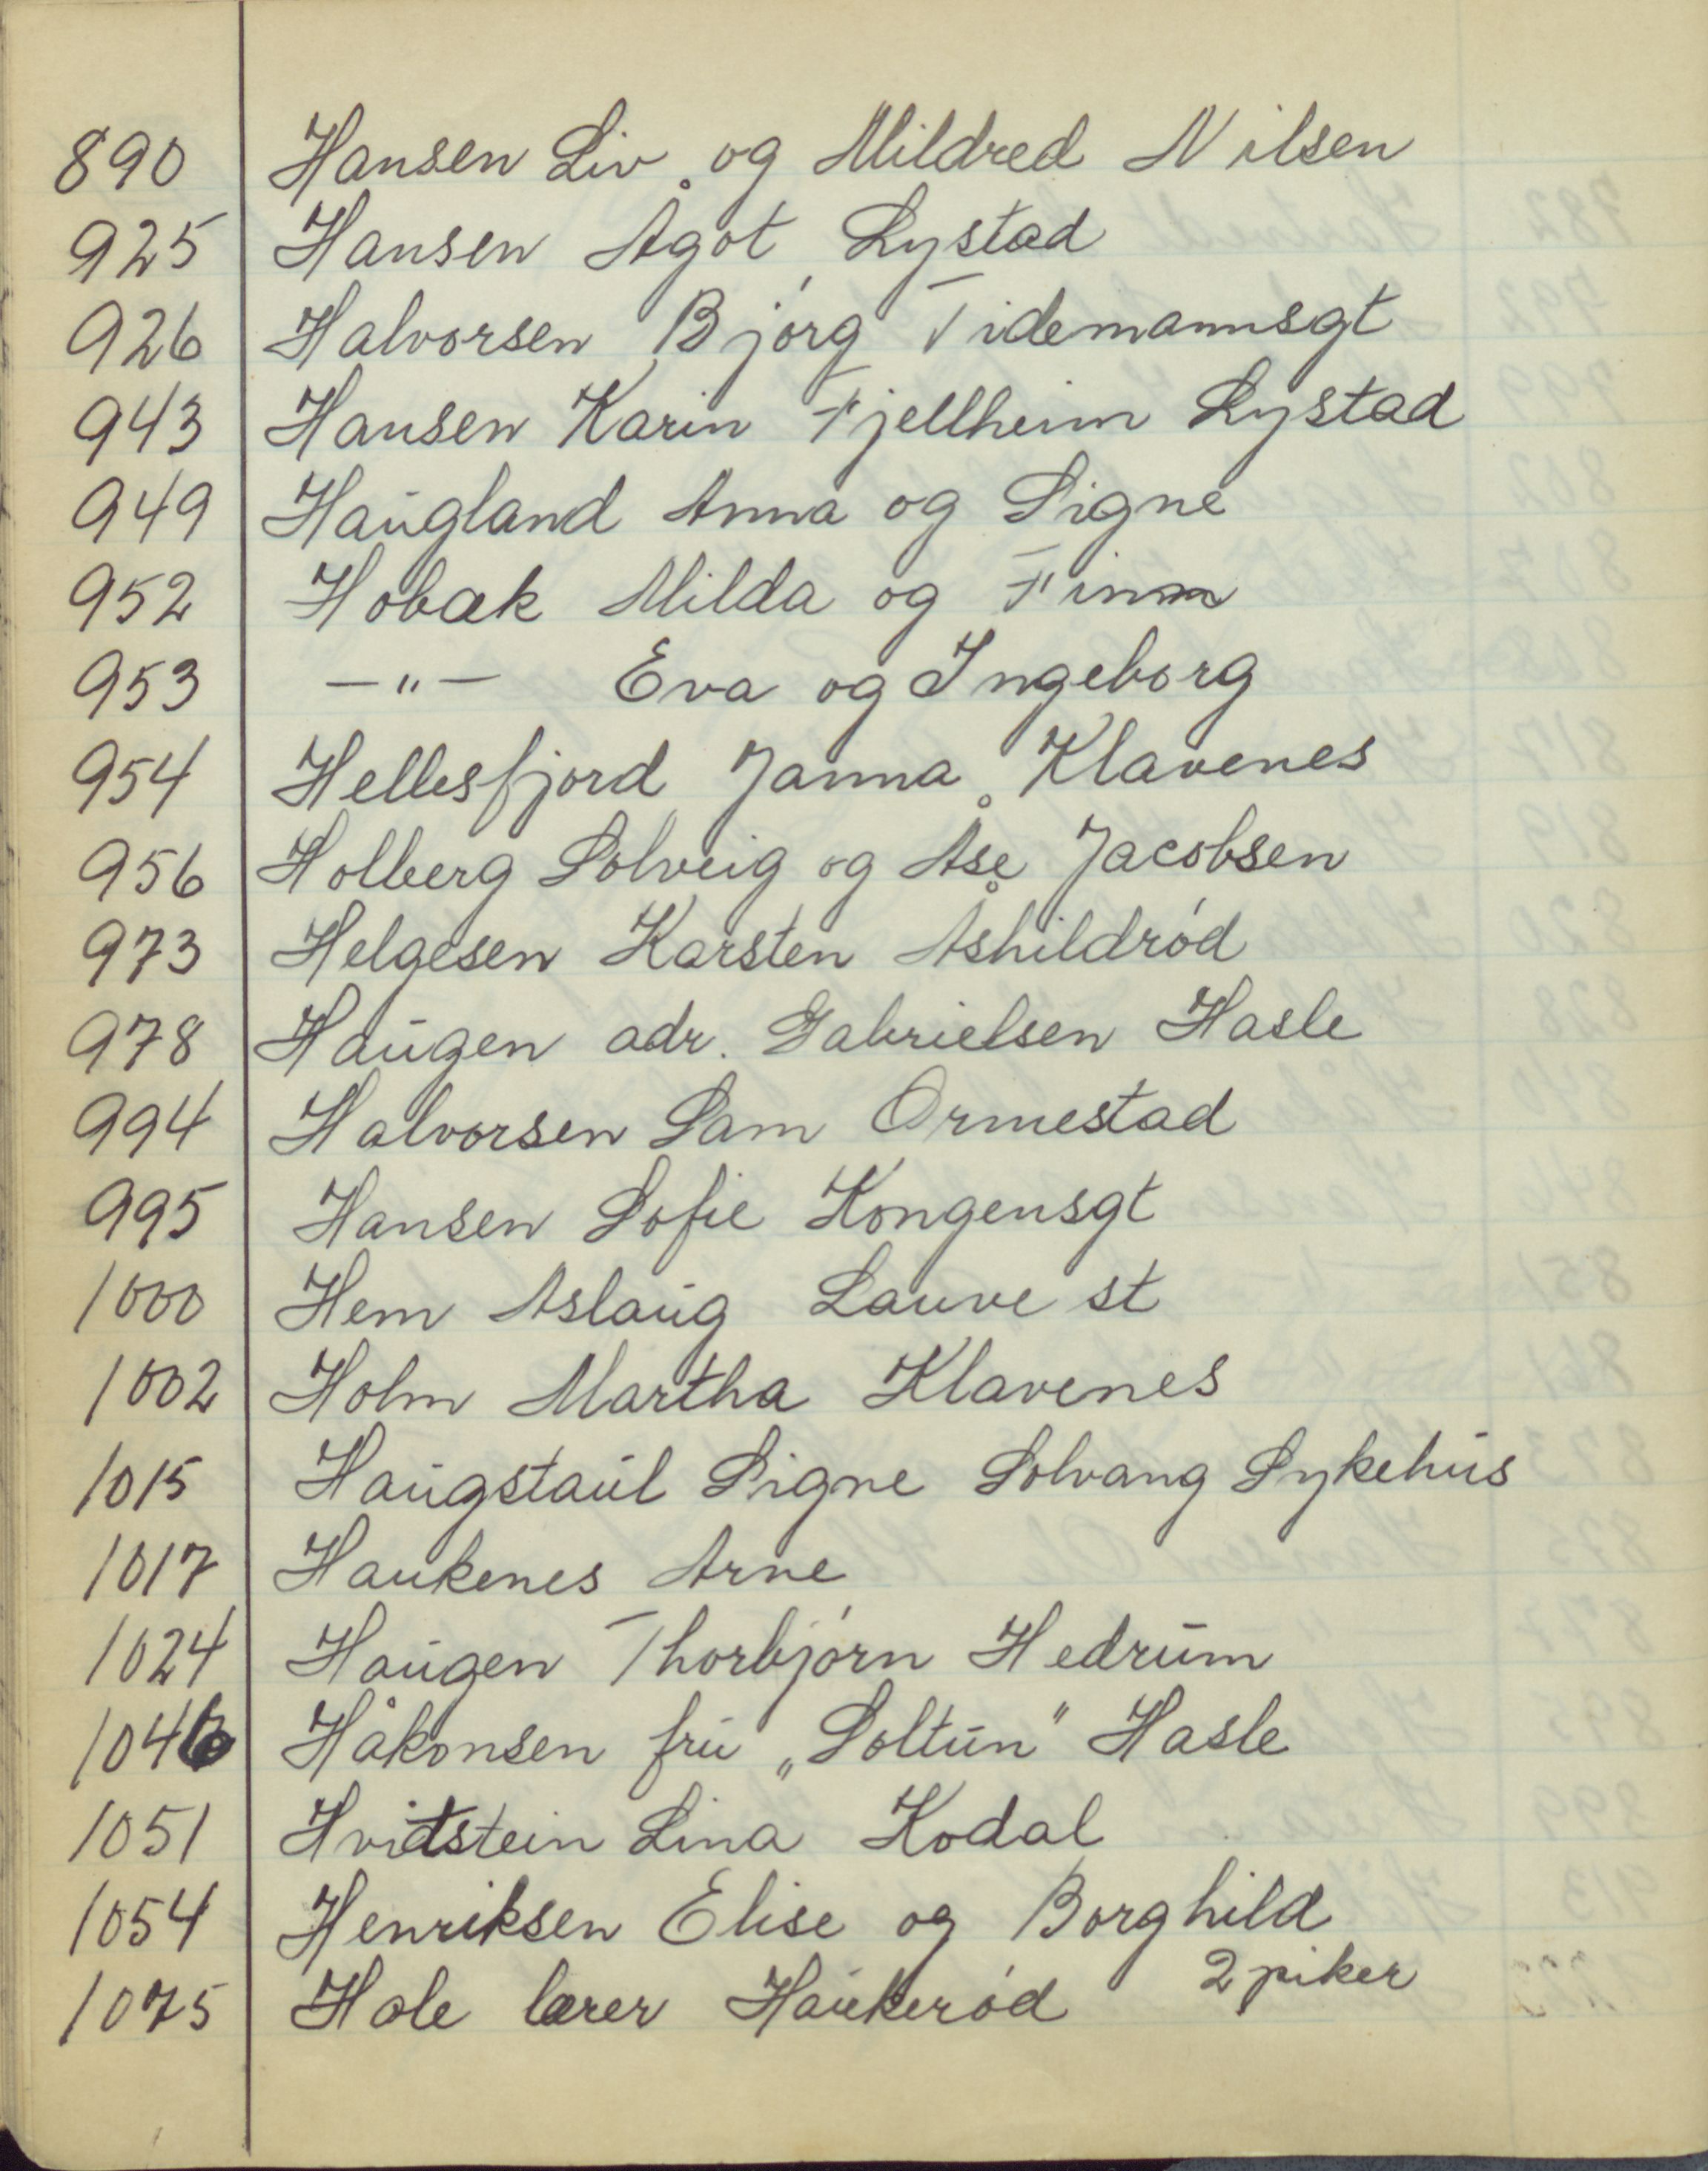 890 Hansen Liv og Mildred Nilsen
925 Hansen Ågot Lystad
926 Halvorsen Bjórg Tidemannsgt
943 Hansen Karin Fjellheim Lystad
949 Haugland Anna og Signe
952 Hobæk Milda og Finn
953 —"— Eva og Ingeborg
954 Hellesfjord Janna Klavenes
956 Holberg Solveig og Åse Jacobsen
973 Helgesen Karsten Åshildród
978 Haugen adr. Gabrielsen Hasle
994 Halvorsen Sam Ormestad
995 Hansen Sofie Kongensgt
1000 Hem Aslaug Lauve st
1002 Holm Martha Klavenes
1015 Haugstaul Signe Solvang Sykehus
1017 Haukenes Arne
1024 Haugen Thorbjórn Hedrum
1046 Håkonsen fru „Soltun" Hasle
1051 Hvitstein Lina Kodal
1054 Henriksen Elise og Borghild
2 piker
1075 Hole lærer Haukeród